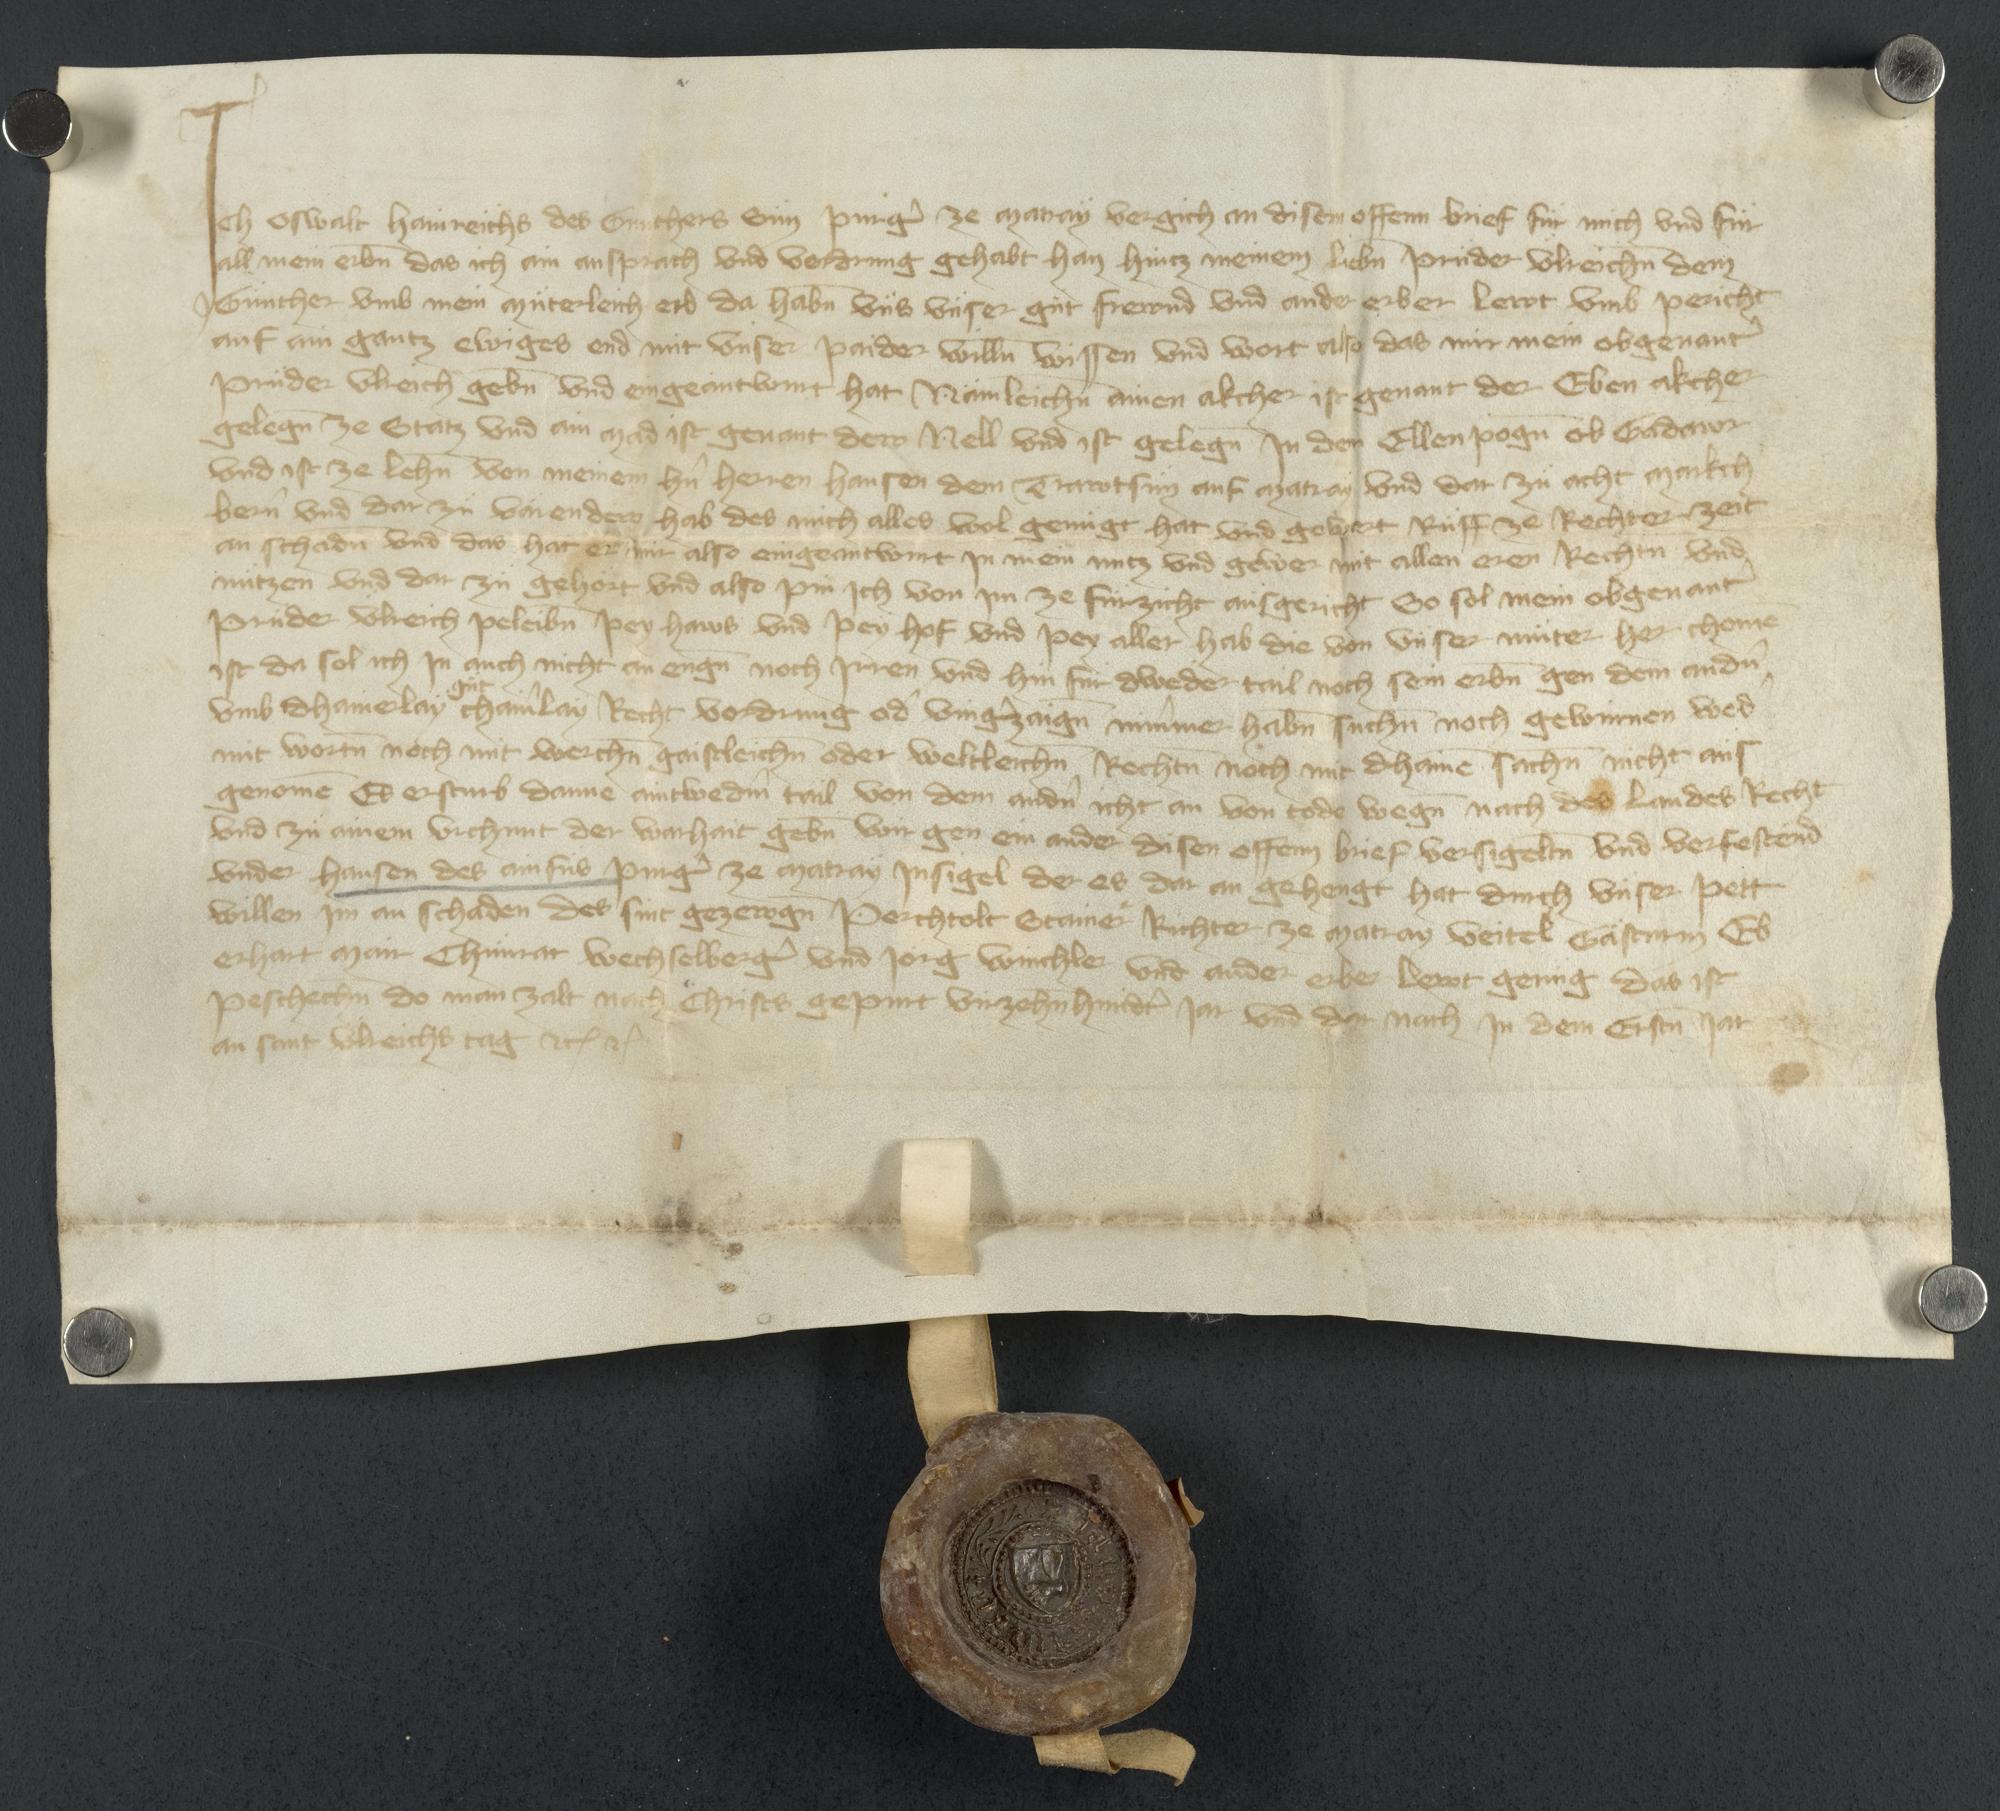 Ich Oswalt Hainreichs des Gunthers Sun purgˀ ze Matray vergich an disem offenn brief für mich vnd für
all mein erbn̄ das ich ain ansprach vnd vordrung gehabt han hintz meinem liebn̄ Průder Vlreichn̄ dem
Günther vmb mein Můterleich erb da habn̄ vns vnser gůt frewnd vnd ander erber Lewt vmb pericht
auf ain gantz ewiges end mit vnser paider willn̄ wissen vnd wort also das mir mein obgenantˀ
Průder Vlreich gebn̄ vnd eingeantwurt hat Nämleichn̄ ainen akcher ist genant der Eben akcher
gelegn̄ ze Statz vnd ain Mad ist genant dew Nell vnd ist gelegn̄ In den Ellenpogn̄ ob Gadawr
vnd ist ze lehn̄ von meinem hn̄ herren Hansen dem Trawtsun auf Matray vnd dar zů acht Markch
bernˀ vnd dar zů varendew hab des mich alles wol genügt hat vnd gewert Rüff ze Rechter zeit
an schadn̄ vnd das hat er mir also eingeantwurt In mein nutz vnd gewer mit allen eren Rechtn̄ vnd
nützen vnd dar zů gehört vnd also pin Ich von im ze fürzicht ausgericht So sol mein obgenantˀ
Průder Vlreich peleibn̄ pey haws vnd pey hof vnd pey aller hab die von vnser můter her chomē
ist da sol ich In auch nicht an engn̄ noch Irren vnd hin für dweder tail noch sein erbn̄ gen dem andnˀ
vmb dhainerlay gůt chainˀlay Recht vordrung odˀ vingˀzaign̄ nimmer habn̄ suchn̄ noch gewinnen wedˀ
mit wortn̄ noch mit werchn̄ gaistleichn̄ oder weltleichn̄ Rechtn̄ noch mit dhainē sachn̄ nicht aus
genomē Es ersturb danne aintwedmˀ tail von dem andnˀ icht an von tode wegn̄ nach des Landes Recht
vnd zů ainem vrchunt der warhait gebn̄ wir gen ein ander disen offenn brief versigeltn̄ vnd verfestend
vnder Hansen des ainfus purgˀ ze Matray Insigel der es dar an gehengt hat durch vnser pett
willen im an schaden des sint gezewgn̄ Perchtolt Stainer Richter ze Matray Veitel Gästurm Eb
erhart Mair Chunrat Wechselbergˀ vnd Jörg Winchler vnd ander erber Lewt genug das ist
peschechn̄ do man zalt nach Christs gepurt virzehnhundˀt Jar vnd dar nach In dem Erstn̄ Jar
an sant Vlreichs tag etc etc